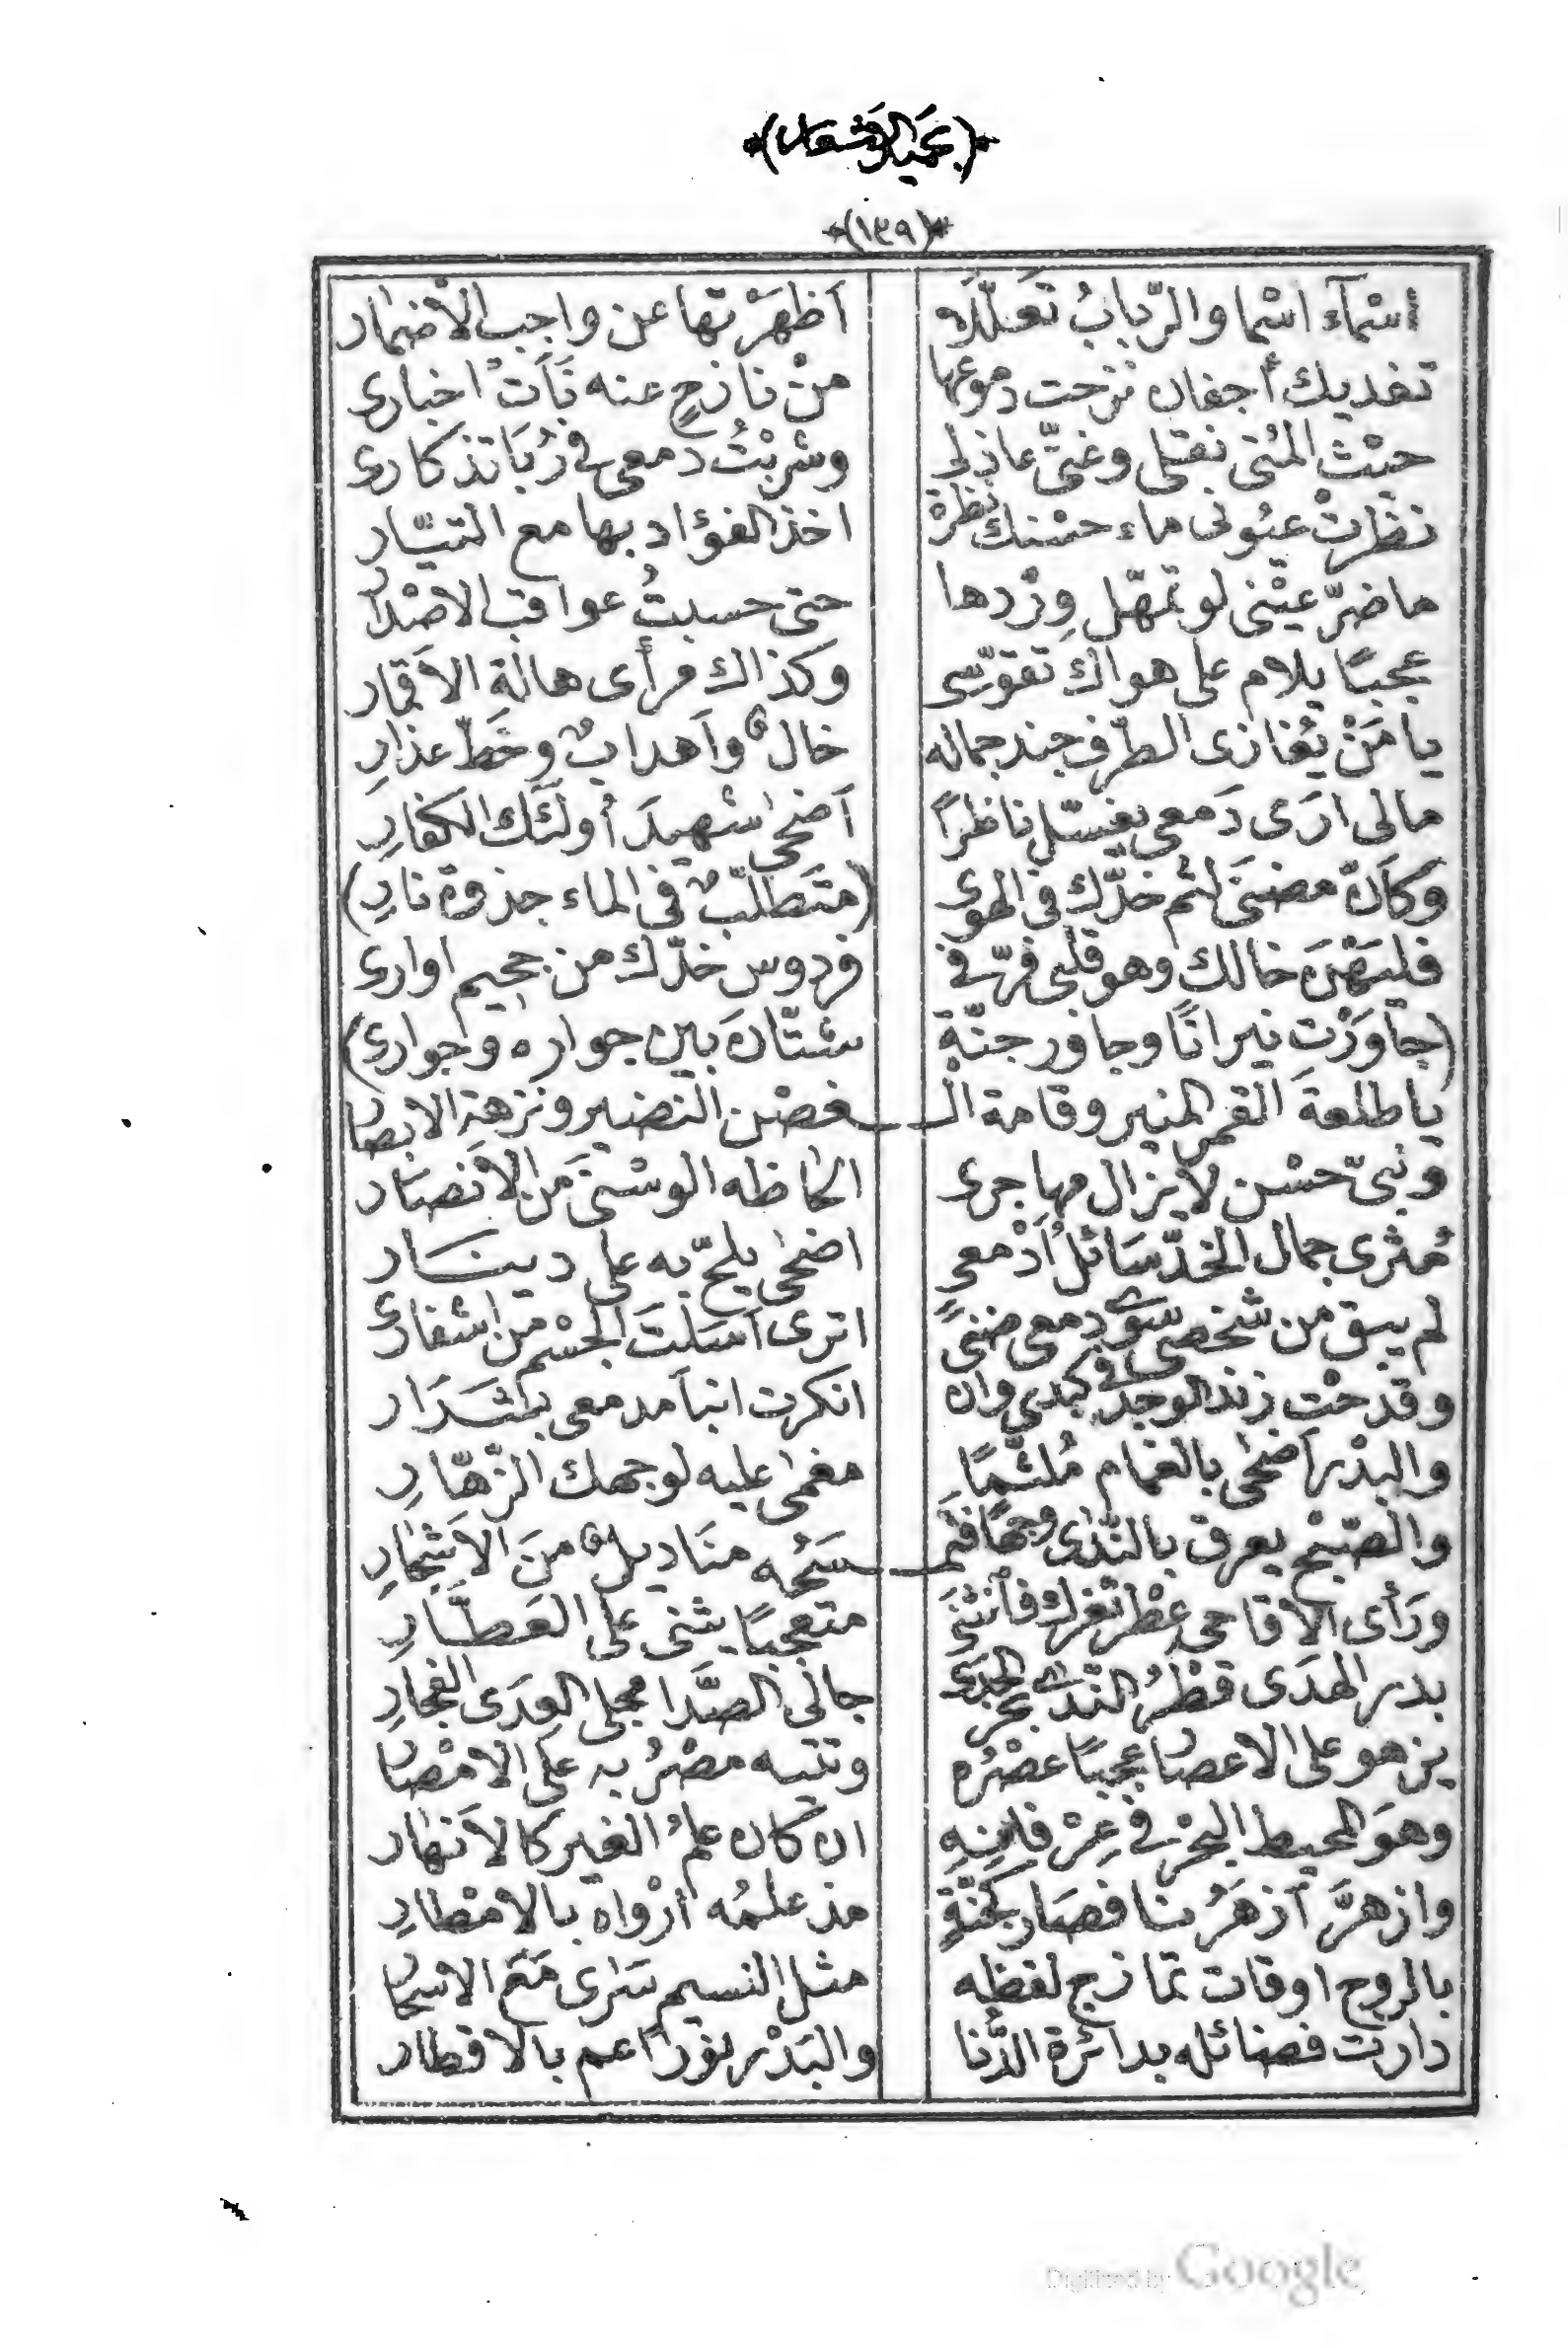 (١٣٩)
أسْمآء اسْما والرّبابُ تَعلّلَه اَظهَرْتها عن واجب الأضمار
تفديك أجفان نزحت دموعها منْ نازحٍ عنه نَأَتْ اخبارى
وشربْتُ دمعى فى رُبَا تذكارى
نظرتْ عيُونى ماء حسْنك نظرةْ اخذ الفؤاد بها مع التيّار
ما ضرّ عيْنى لو تمهّل وِرْدها حتى حسبتُ عواقب الاصْدار
عجبًا يلام على هواك تقوّسى وكذاك من رأى هالة الاَقمار
يا مَنْ يُغازى الطرف جند جماله خالٌ وأهدابٌ وخَطّ عذارِ
مالى ارَى دَمعى يغسّل ناظرًا اَضحى شهيدَ أولئك الكفارِ
وكأنّ مضنىً لثم خدّك فى الهوى (متَطلّبٌ فى الماء جذوة نارِ)
فليَهْنَ خالك وهو قلبى فرّ فى فردوس خدّك من جحيم اوارى
(جاوَرْتِ نيرانًا وجاور جنّةِ شتّان بين جواره وجوارى)
يا طلعةَ القمر المنير وقامة الـ ـغصْن النضير ونزهة الابصار
ونبىّ حسْن لا يزال مهاجرى الحاظه الوسْنىَ من الاَنصار
مُثرى جمال الخدّ سَائلُ أدْمعى اضحى يلحّ به على دينار
لم يبق من شخصى سوى دمعى ضنىً اترى اَسَلتَ الجسْم من اشفارى
وقدحْت زند الوجد فى كبدى وان انكرت انبا مدمعى بشَرَار
والبدْر اَضحى بالغمام مُلثّمًا مغمى عليه لوجهك الزّهّارِ
والصّبْح يعرق بالندى وجهًا فتمـ ـسَحُه منَاديلٌ منَ الاَشجارِ
ورَأى الأقاحى عِطْر ثغرك فانثنَى متعجبًا يثنى على العَطَّارِ
بدر الهدَى قطْرُ الندى جانى الصَّدا مجلى العِدَى الفجارِ
يزهو على الاعصار عجبًا عصْرُه وتتيه مصْرُ به على الامْصار
وهوَ المحيط البحْر فى عِرْفانِهِ ان كان علمُ الغير كالاَنهار
وازهرَّ اَزهَرُنا فصَار كجنّةٍ مذ علمُه أرْواه بالامْطارِ
بالروح اوقات تمازج لفظه مثل النسيم سَرى مَعَ الاسْحار
دارت فضائله بدائرة الدُّنا والبَدْر نورًا عم بالاقطار
Digitized by Google